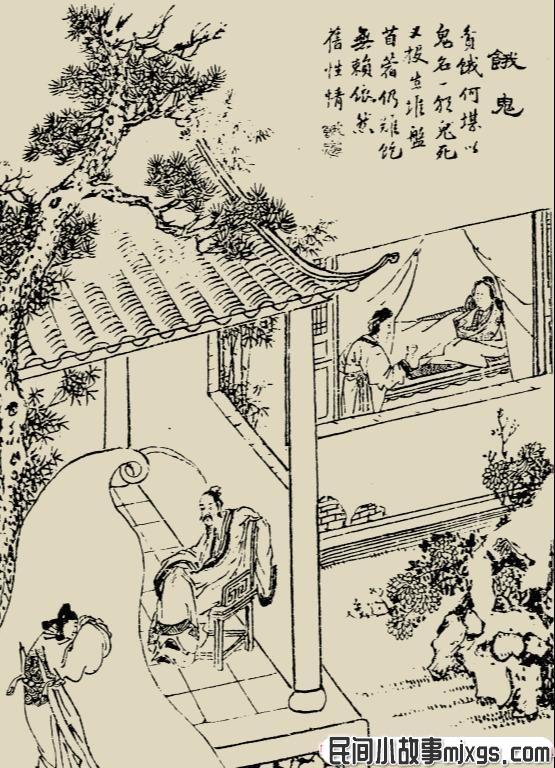 餓鬼
貧餓何堪以
鬼名一朝鬼死
又投生堆盤
苜蓿仍難飽
無賴依然
舊性情
民间小故事mjxgs.com